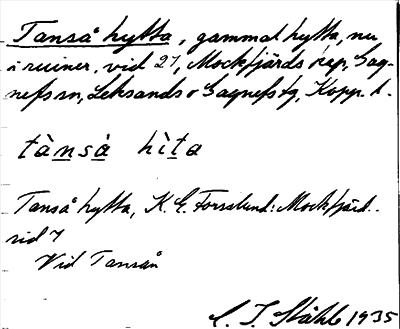 Tanså hytta, gammal hytta, nu
i ruiner, vid 27, Mockfjärds kap, Gag-
nefs sn, Leksands o Gagnefs tg, Kopp. l.
tànsà hìta
Tanså hytta, K. E. Forsslund: Mockfjärd.
sid 7
Vid Tansån
1935